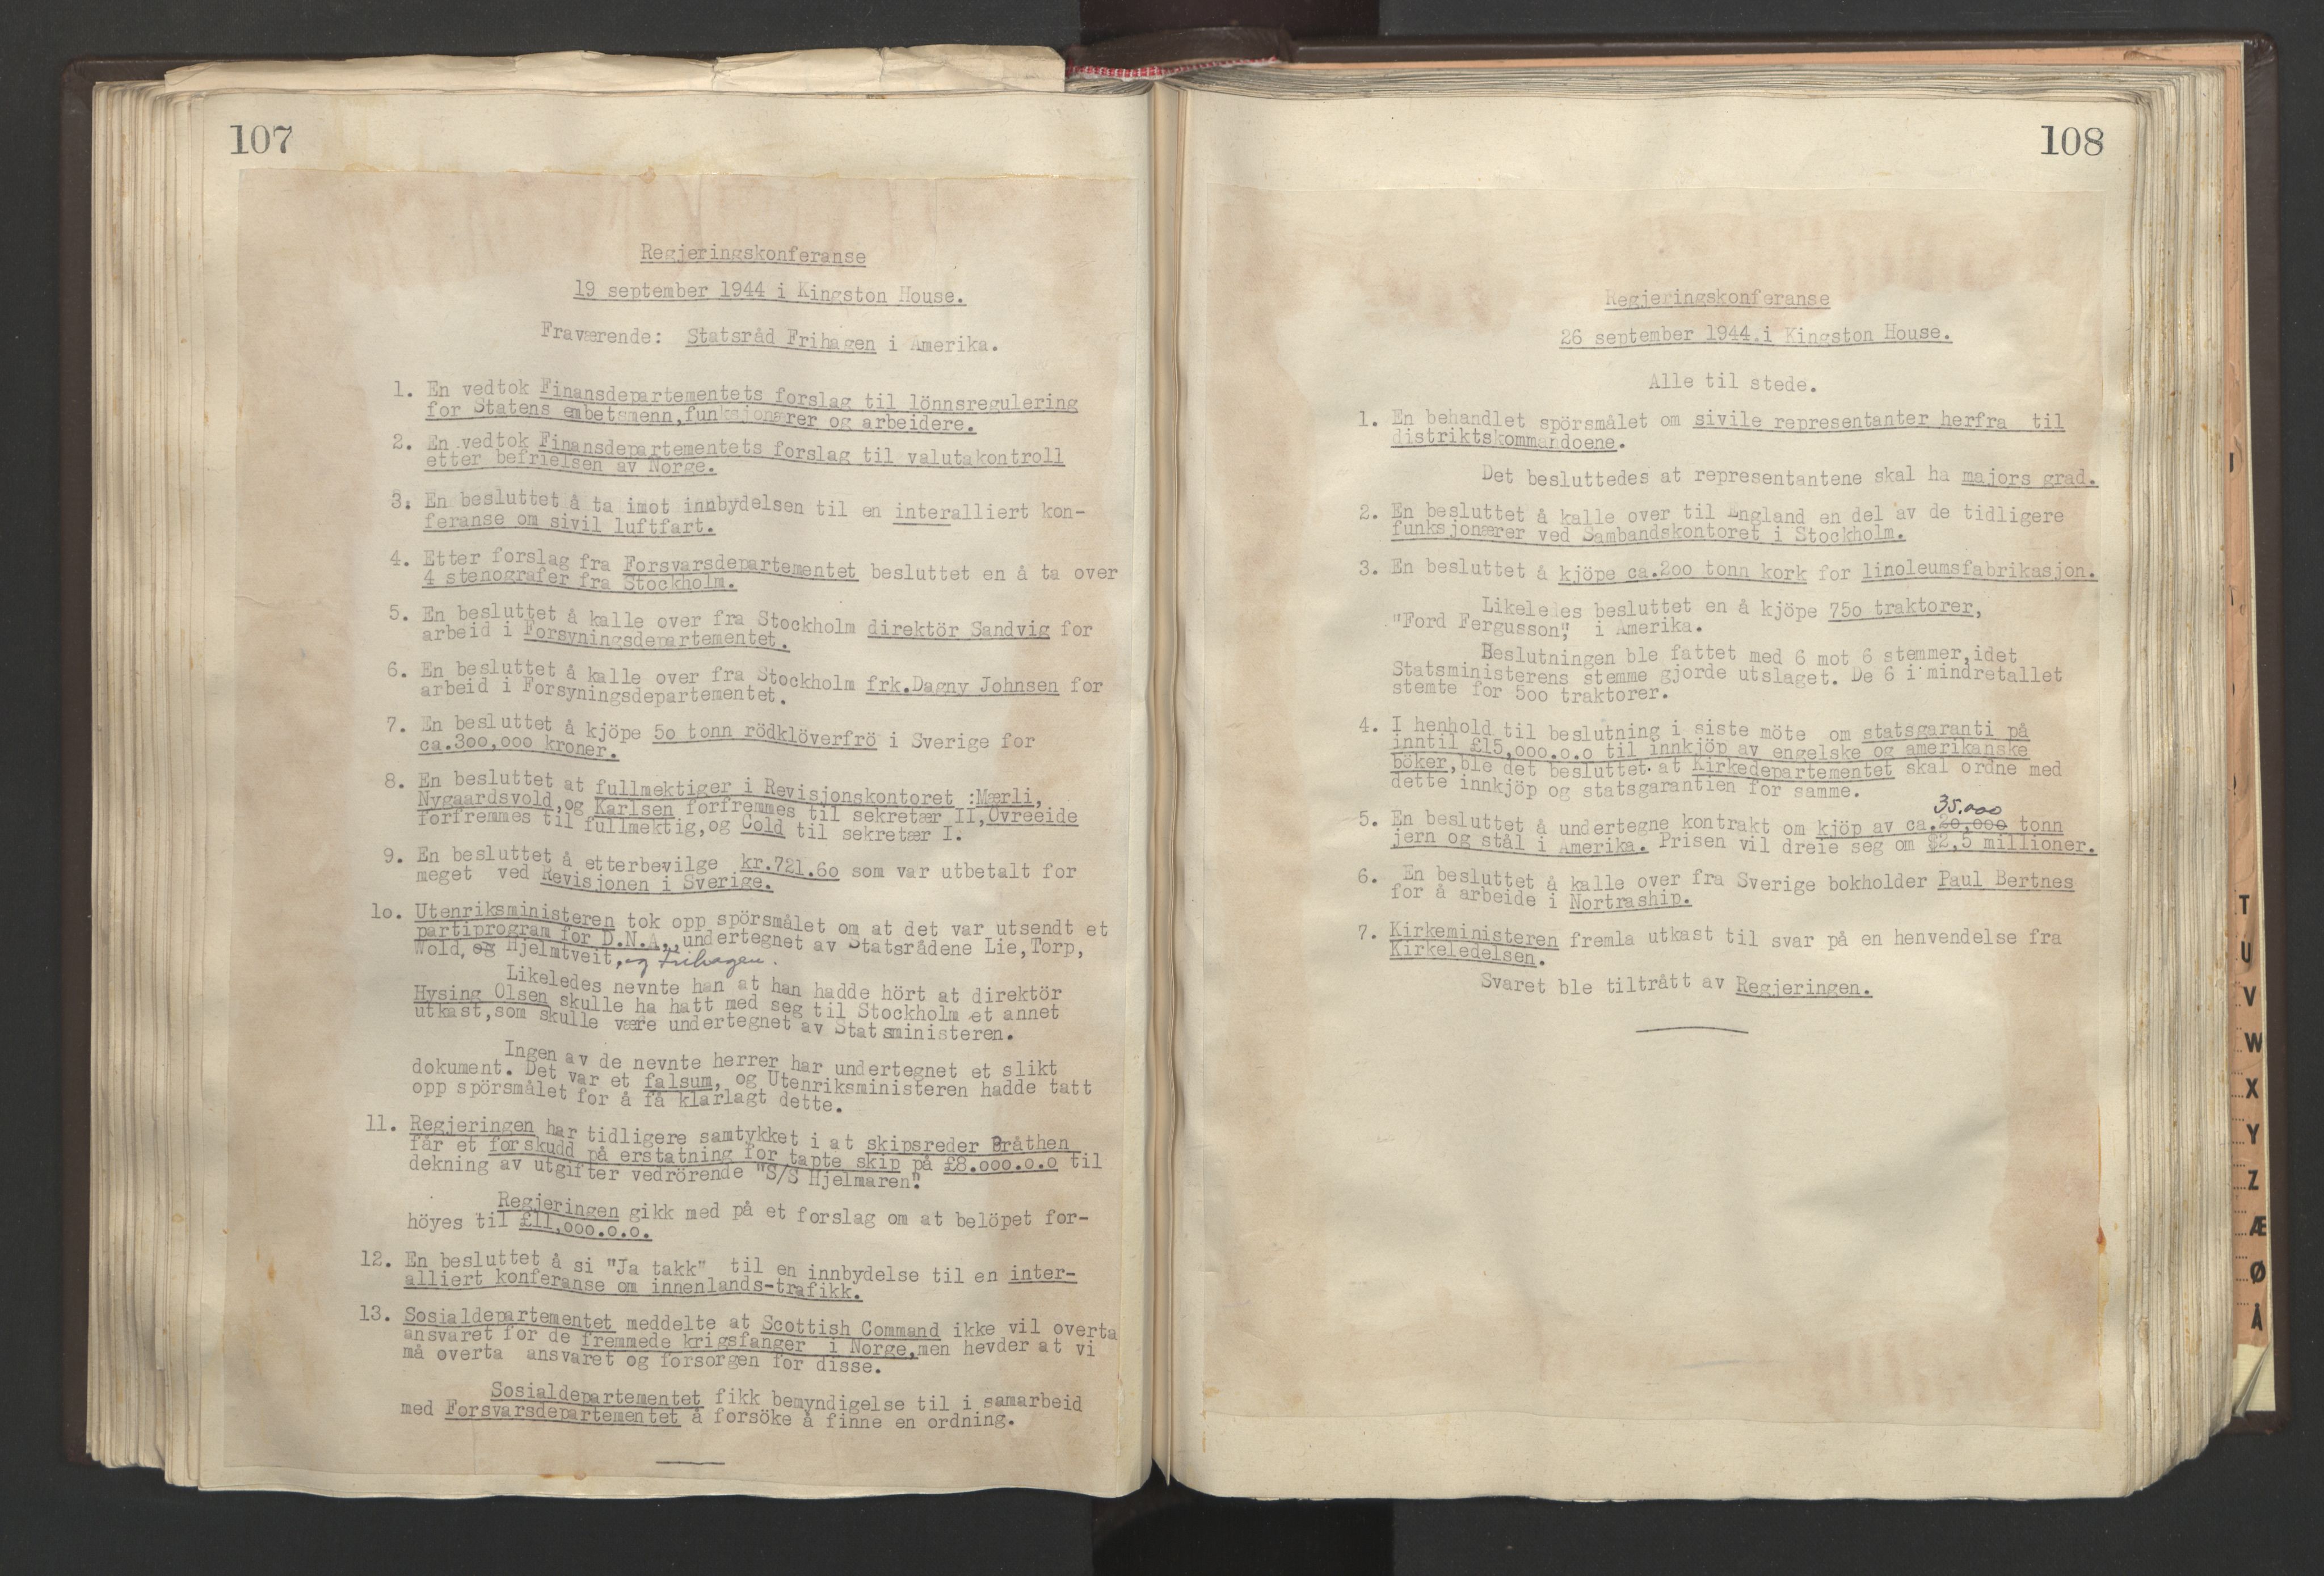 107
Regjeringskonferanse
19 september 1944 i Kingston House.
Fraværende: Statsråd Frihagen i Amerika.
1. En vedtok Finansdepartementets forslag til lönnsregulering
for Statens embetsmenn,funksjonærer og arbeidere.
2. En vedtok Finansdepartementets forslag til valutakontroll
etter befrielsen av Norge.
3. En besluttet å ta imot innbydelsen til en interalliert kon-
feranse om sivil luftfart.
4. Etter forslag fra Forsvarsdepartementet besluttet en å ta over
4 stenografer fra Stockholm.
5. En besluttet å kalle over fra Stockholm direktör Sandvig for
arbeid i Forsyningsdepartementet.
6. En besluttet å kalle over fra Stockholm frk.Dagny Johnsen for
arbeid i Forsyningsdepartementet.
7. En besluttet å kjöpe 5o tonn rödklöverfrö i Sverige for
ca.3oo,ooo kroner.
8. En besluttet at fullmektiger i Revisjonskontoret :Mærli,
Nygaardsvold,og Karlsen forfremmes til sekretær II,Övreeide
forfremmes til fullmektig,og Cold til sekretær I.
9. En besluttet å etterbevilge kr.721.6o som var utbetalt for
meget ved Revisjonen i Sverige.
1o. Utenriksministeren tok opp spörsmålet om at det var utsendt et
partiprogram for D.N.A., undertegnet av Statsrådene Lie,Torp,
Wold, og Hjelmtveit, og Frihagen.
Likeledes nevnte han at han hadde hört at direktör
Hysing Olsen skulle ha hatt med seg til Stockholm et annet
utkast,som skulle være undertegnet av Statsministeren.
Ingen av de nevnte herrer har undertegnet et slikt
dokument. Det var et falsum, og Utenriksministeren hadde tatt
opp spörsmålet for å få klarlagt dette.
11. Regjeringen har tidligere samtykket i at skipsreder Bråthen
får et forskudd på erstatning for tapte skip på £8.ooo.o.o til
dekning av utgifter vedrörende "S/S Hjelmaren".
Regjeringen gikk med på et forslag om at belöpet for-
höyes til £11,ooo.o.o.
12. En besluttet å si "Ja takk" til en innbydelse til en inter-
alliert konferanse om innenlands-trafikk.
13. Sosialdepartementet meddelte at Scottish Command ikke vil overta
ansvaret for de fremmede krigsfanger i Norge,men hevder at vi
må overta ansvaret og forsorgen for disse.
Sosialdepartementet fikk bemyndigelse til i samarbeid
med Forsvarsdepartementet å forsöke å finne en ordning.
108
Regjeringskonferanse
26 september 1944.i Kingston House.
Alle til stede.
1. En behandlet spörsmålet om sivile representanter herfra til
distriktskommandoene.
Det besluttedes at representantene skal ha majors grad.
2. En besluttet å kalle over til England en del av de tidligere
funksjonærer ved Sambandskontoret i Stockholm.
3. En besluttet å kjöpe ca.2oo tonn kork for linoleumsfabrikasjon.
Likeledes besluttet en å kjöpe 75o traktorer,
"Ford Fergusson", i Amerika.
Beslutningen ble fattet med 6 mot 6 stemmer,idet
Statsministerens stemme gjorde utslaget. De 6 i mindretallet
stemte for 5oo traktorer.
4. I henhold til beslutning i siste möte om statsgaranti på
inntil £15,ooo.o.o til innkjöp av engelske og amerikanske
böker,ble det besluttet at Kirkedepartementet skal ordne med
dette innkjöp og statsgarantien for samme.
35.000
5. En besluttet å undertegne kontrakt om kjöp av ca.2o,ooo tonn
jern og stål i Amerika. Prisen vil dreie seg om $2,5 millioner.
6. En besluttet å kalle over fra Sverige bokholder Paul Bertnes
for å arbeide i Nortraship.
7. Kirkeministeren fremla utkast til svar på en henvendelse fra
Kirkeledelsen.
Svaret ble tiltrått av Regjeringen.
T
U
V
W
X
Y
Z
Æ
Ø
Å